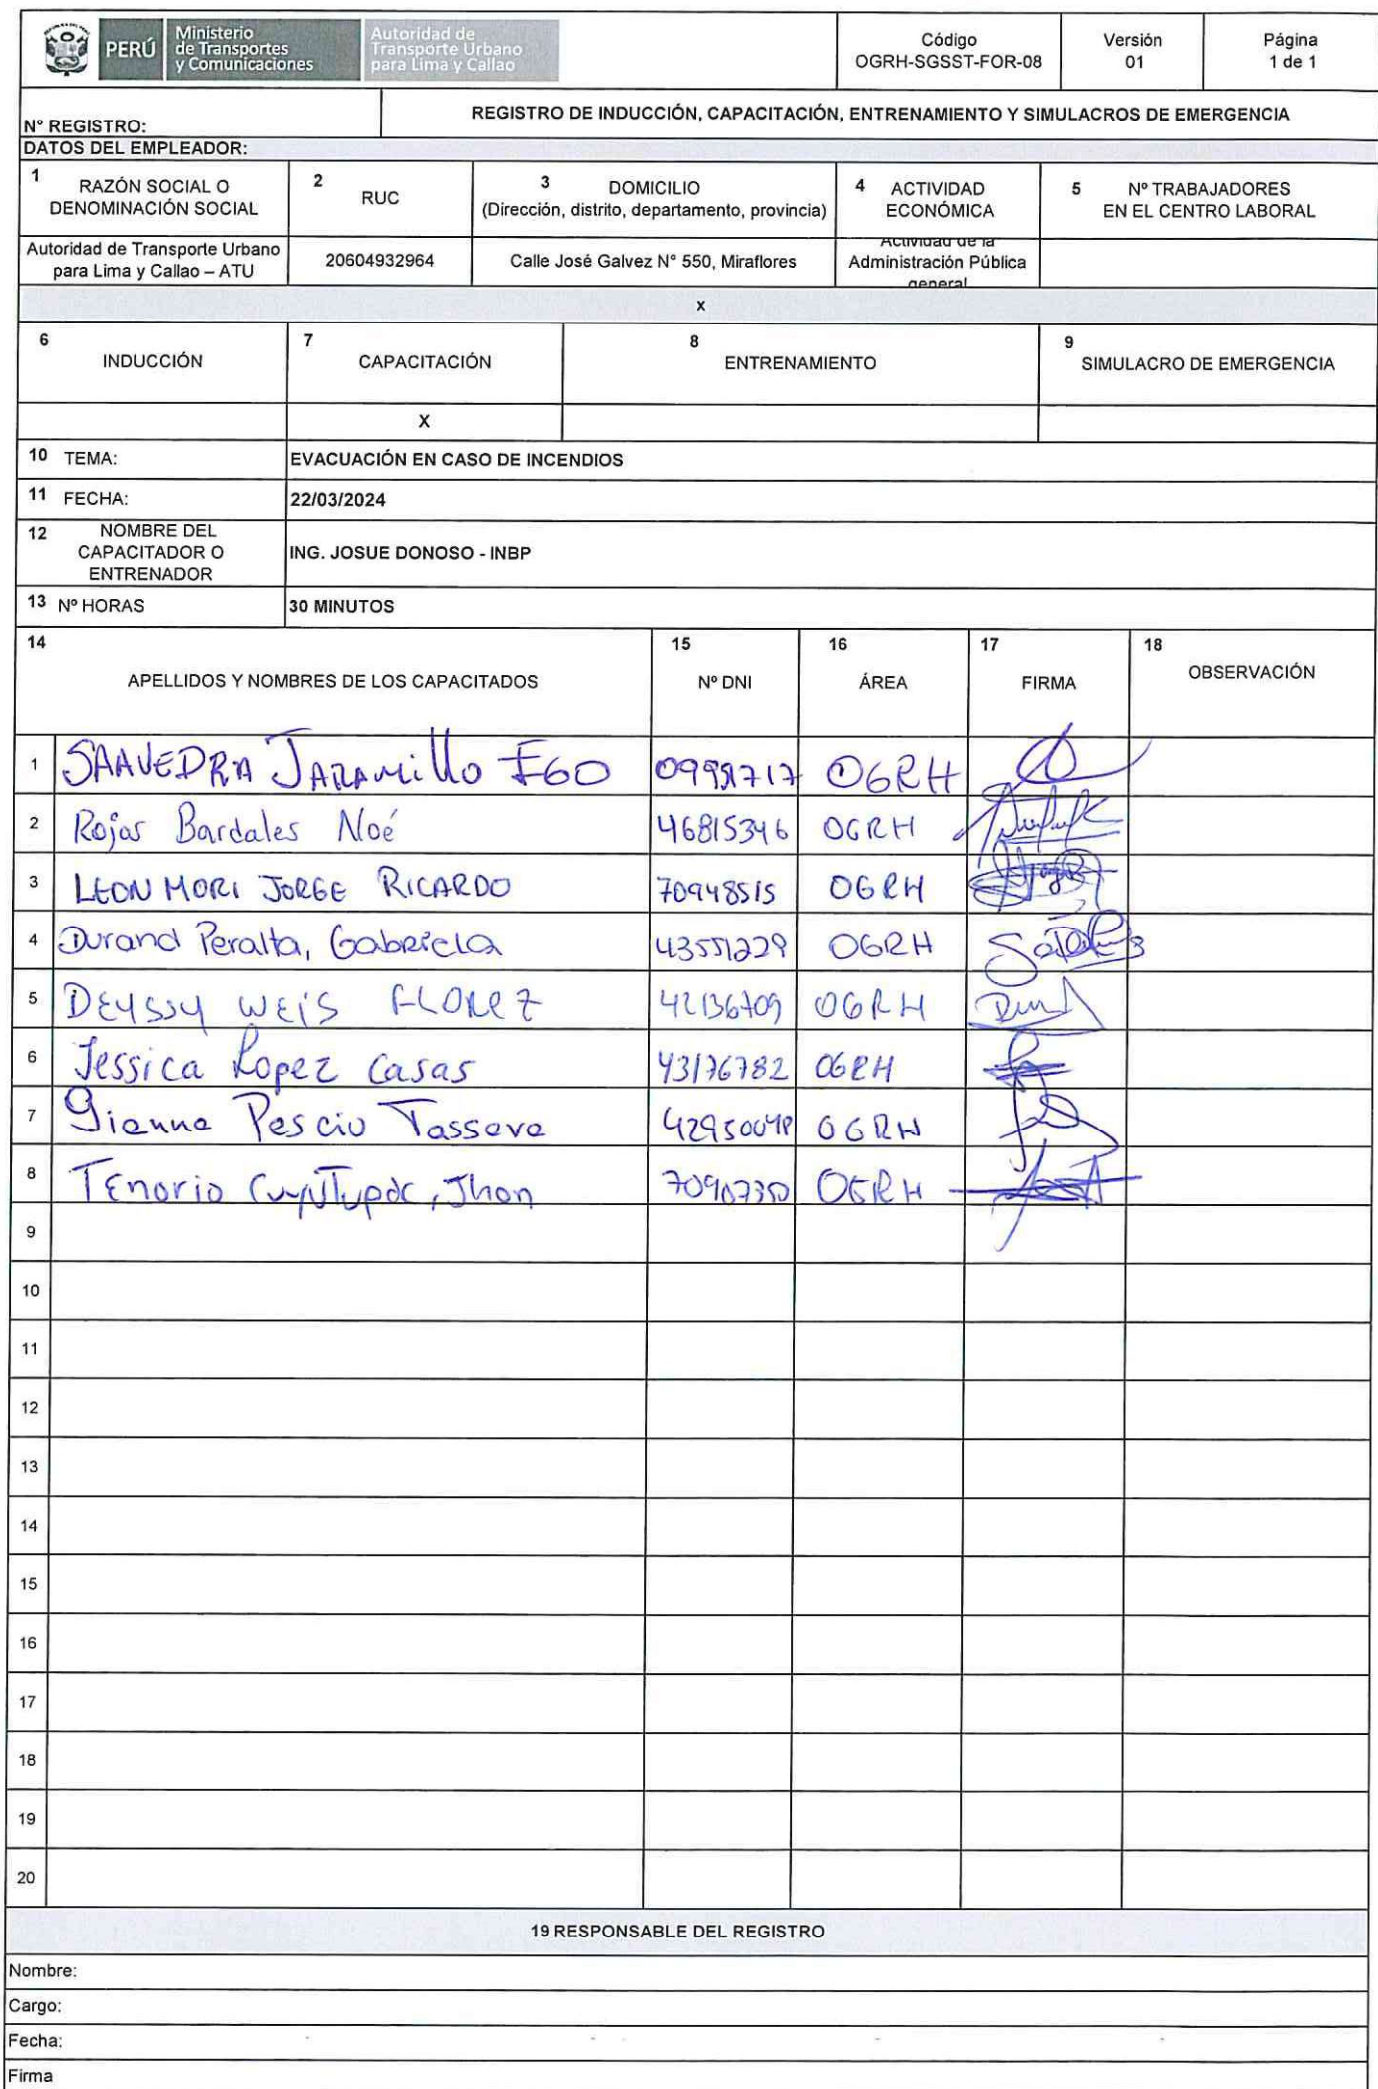 PERÚ
Ministerio
de Transportes
y Comunicaciones
Autoridad de
Transporte Urbano
para Lima y Callao
Código
OGRH-SGSST-FOR-08
Versión
01
Página
1 de 1
N° REGISTRO:
REGISTRO DE INDUCCIÓN, CAPACITACIÓN, ENTRENAMIENTO Y SIMULACROS DE EMERGENCIA
DATOS DEL EMPLEADOR:
1 RAZÓN SOCIAL O
DENOMINACIÓN SOCIAL
2 RUC
3 DOMICILIO
(Dirección, distrito, departamento, provincia)
4 ACTIVIDAD
ECONÓMICA
5 Nº TRABAJADORES
EN EL CENTRO LABORAL
Autoridad de Transporte Urbano
para Lima y Callao – ATU
20604932964
Calle José Galvez N° 550, Miraflores
Actividad de la
Administración Pública
general
x
6 INDUCCIÓN
7 CAPACITACIÓN
8 ENTRENAMIENTO
9 SIMULACRO DE EMERGENCIA
X
10 TEMA: EVACUACIÓN EN CASO DE INCENDIOS
11 FECHA: 22/03/2024
12 NOMBRE DEL
CAPACITADOR O
ENTRENADOR
ING. JOSUE DONOSO - INBP
13 Nº HORAS 30 MINUTOS
14 APELLIDOS Y NOMBRES DE LOS CAPACITADOS
15 Nº DNI
16 ÁREA
17 FIRMA
18 OBSERVACIÓN
1 SAAVEDRA JARAMillo OGRH
2 Rojas Bardales Noé 46815346 OGRH
3 LEON MORI JORGE RICARDO 70948515 OGRH
4 Durand Peralta, Gabriela 43551229 OGRH
5 DEYSSY WEIS FLOREZ 42136709 OGRH
6 Jessica Lopez Casas 43176782 OGRH
7 Gianna Pescio Tassara OGRH
8 Tenorio , Jhon 70907350 OGRH
9
10
11
12
13
14
15
16
17
18
19
20
19 RESPONSABLE DEL REGISTRO
Nombre:
Cargo:
Fecha:
Firma